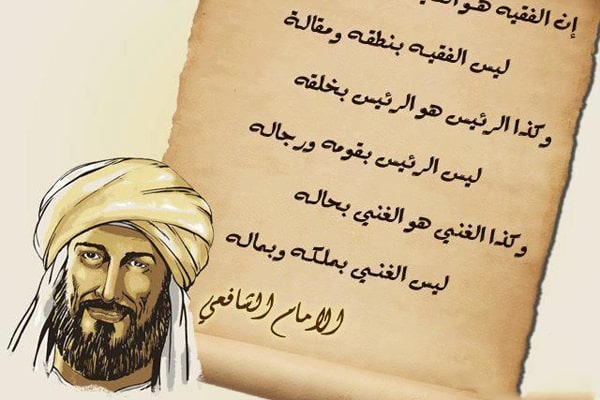 إن الفقيه هو
ليس الفقيه بنطقه ومقالة
وكذا الرئيس هو الرئيس بخلقه
ليس الرئيس بقومه ورجاله
وكذا الغني هو الغني بحاله
ليس الغني بملكه وبماله
الامام الشافعي